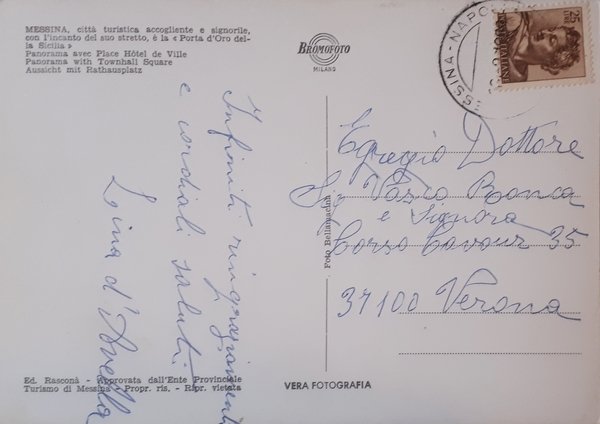 MESSINA, città turistica accogliente e signorile,
con l'incanto del suo stretto, è la « Porta d'Oro del-
la Sicilia »
Panorama avec Place Hôtel de Ville
Panorama with Townhall Square
Aussicht mit Rathausplatz
BROMOFOTO
MILANO
MESSINA-NAPOLI
Infiniti ringraziamenti
e cordiali saluti.
Egregio Dottore
e Signora
Corso Cavour 35
37100 Verona
Foto Bellamacina
Ed. Rasconà - Approvata dall'Ente Provinciale
Turismo di Messina - Propr. ris. - Ripr. vietata
VERA FOTOGRAFIA